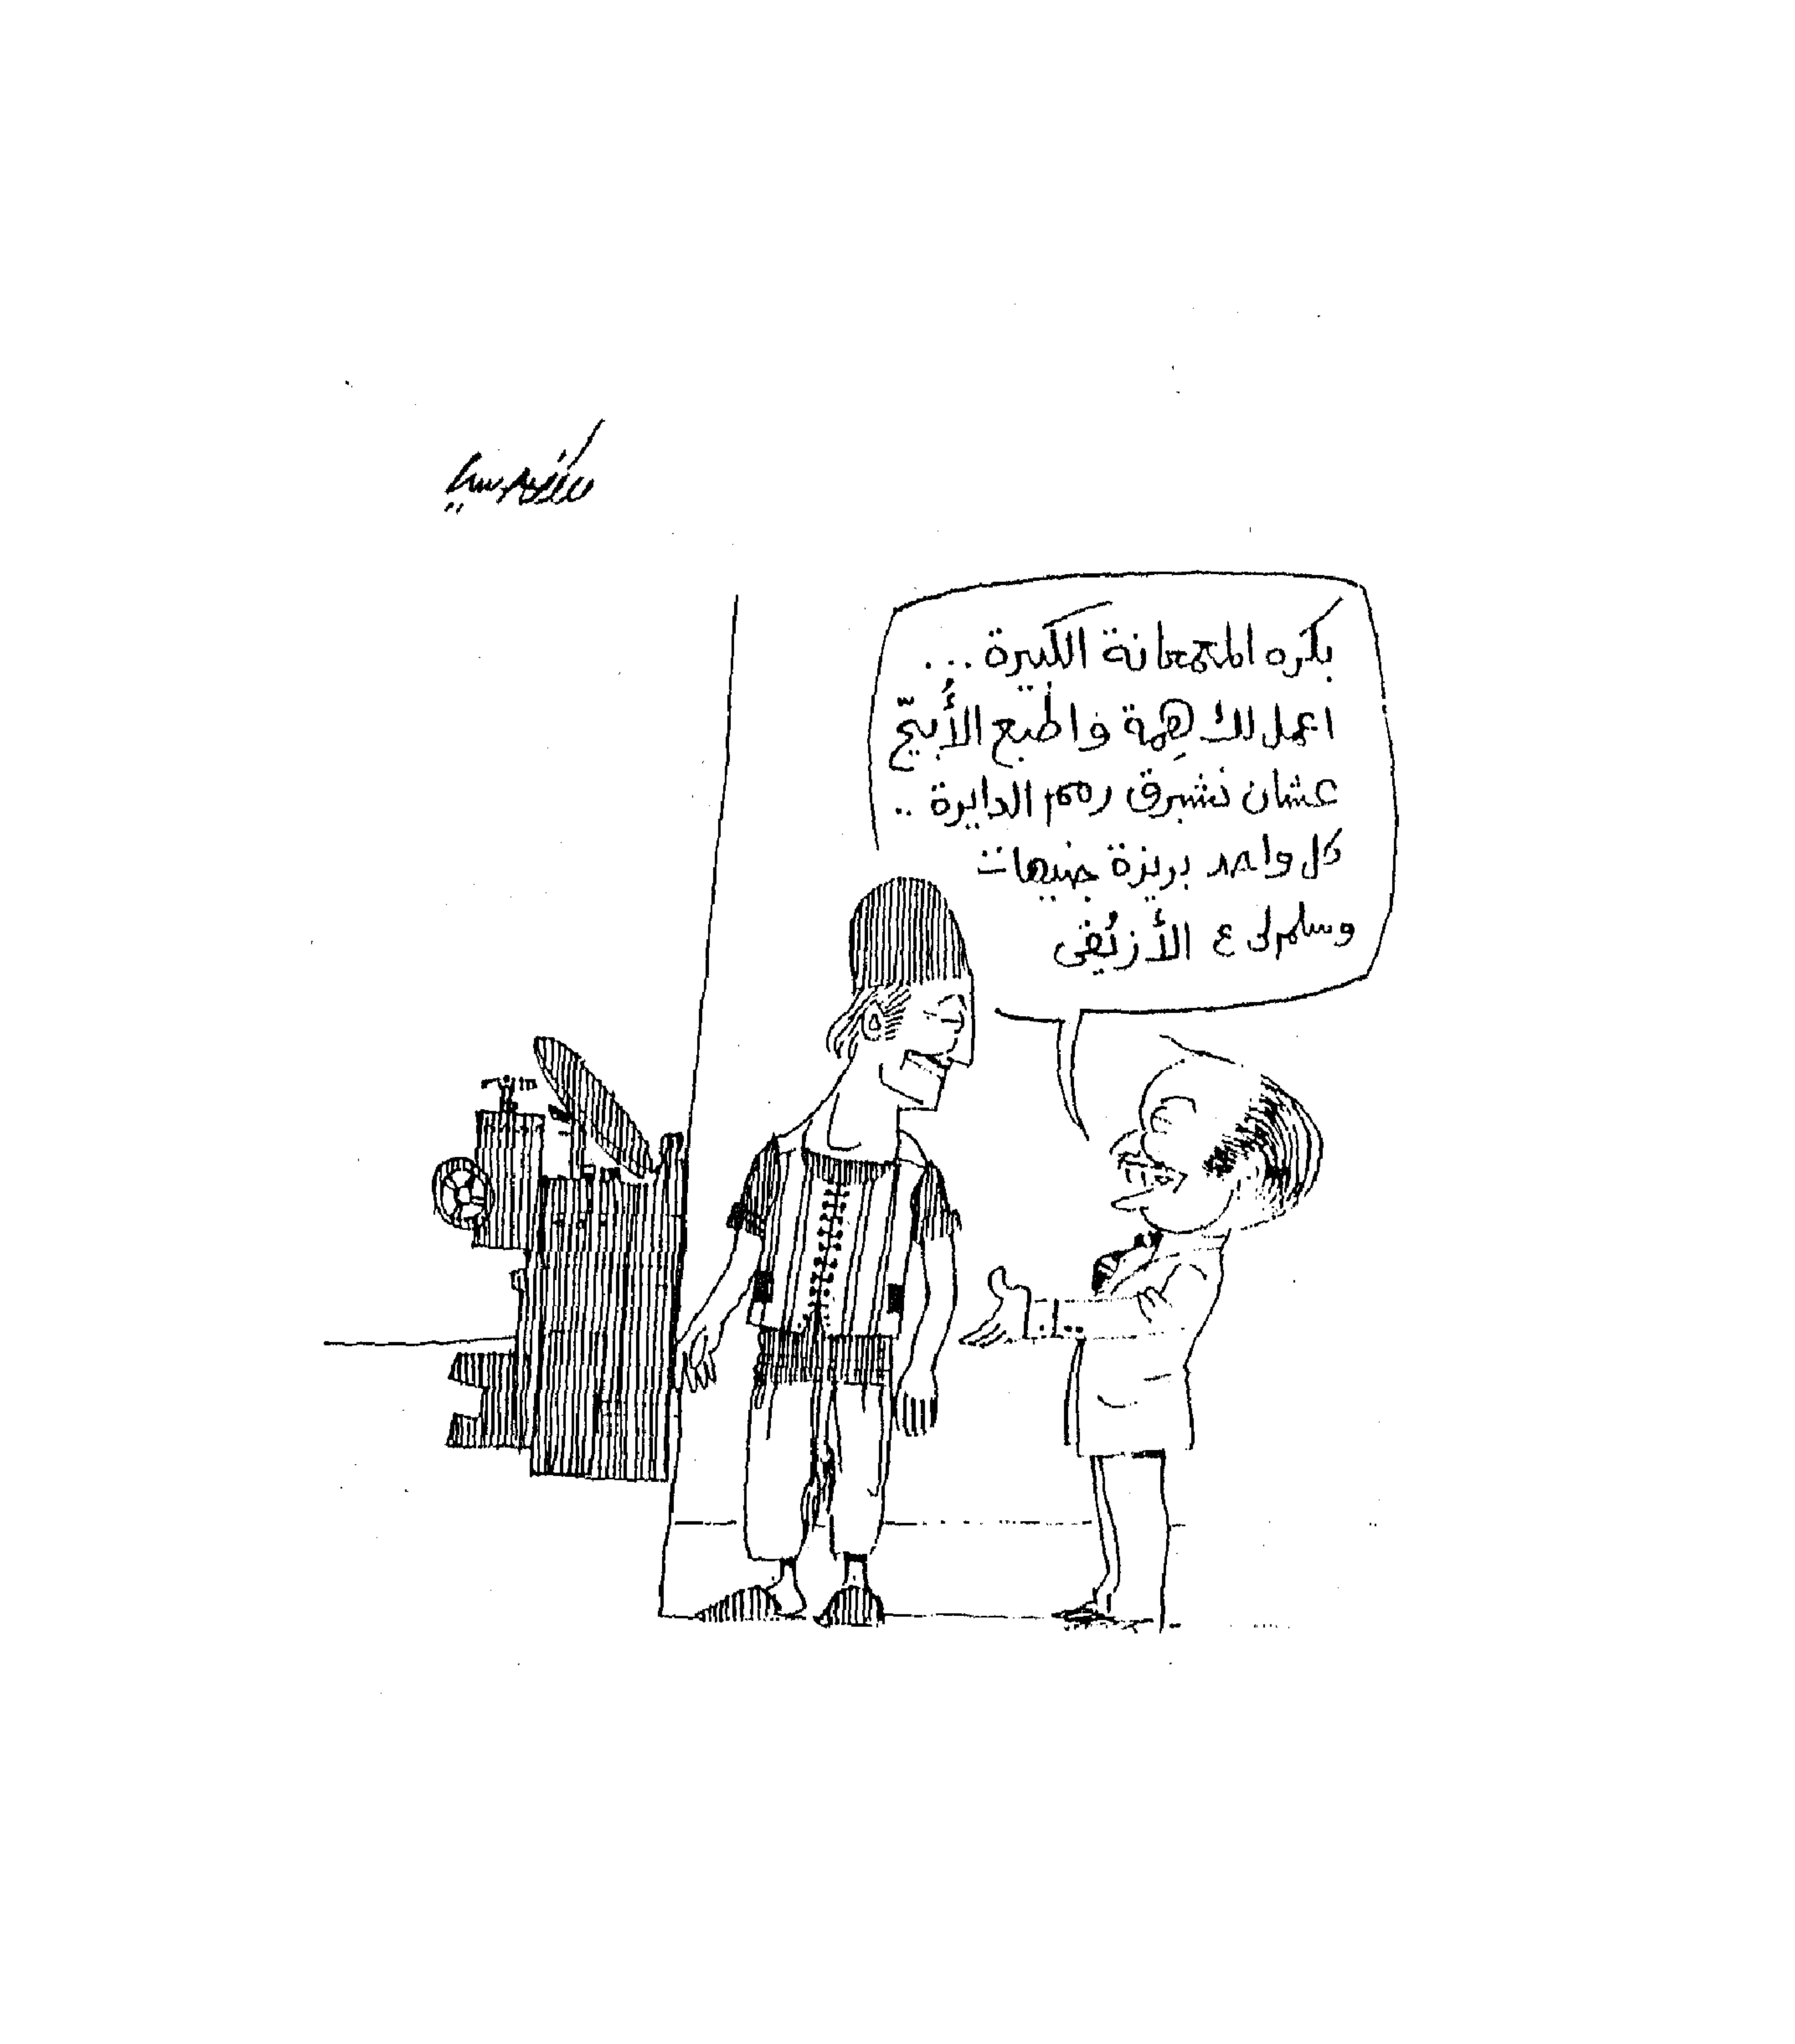 بكره المعمعانة الكبيرة ...
اعمل لك هِمة واطبع الأُبيّج
عشان نشبرق رمم الدايرة ..
كل واحد بريزة جنيهات
وسلم لى ع الأزُيقى